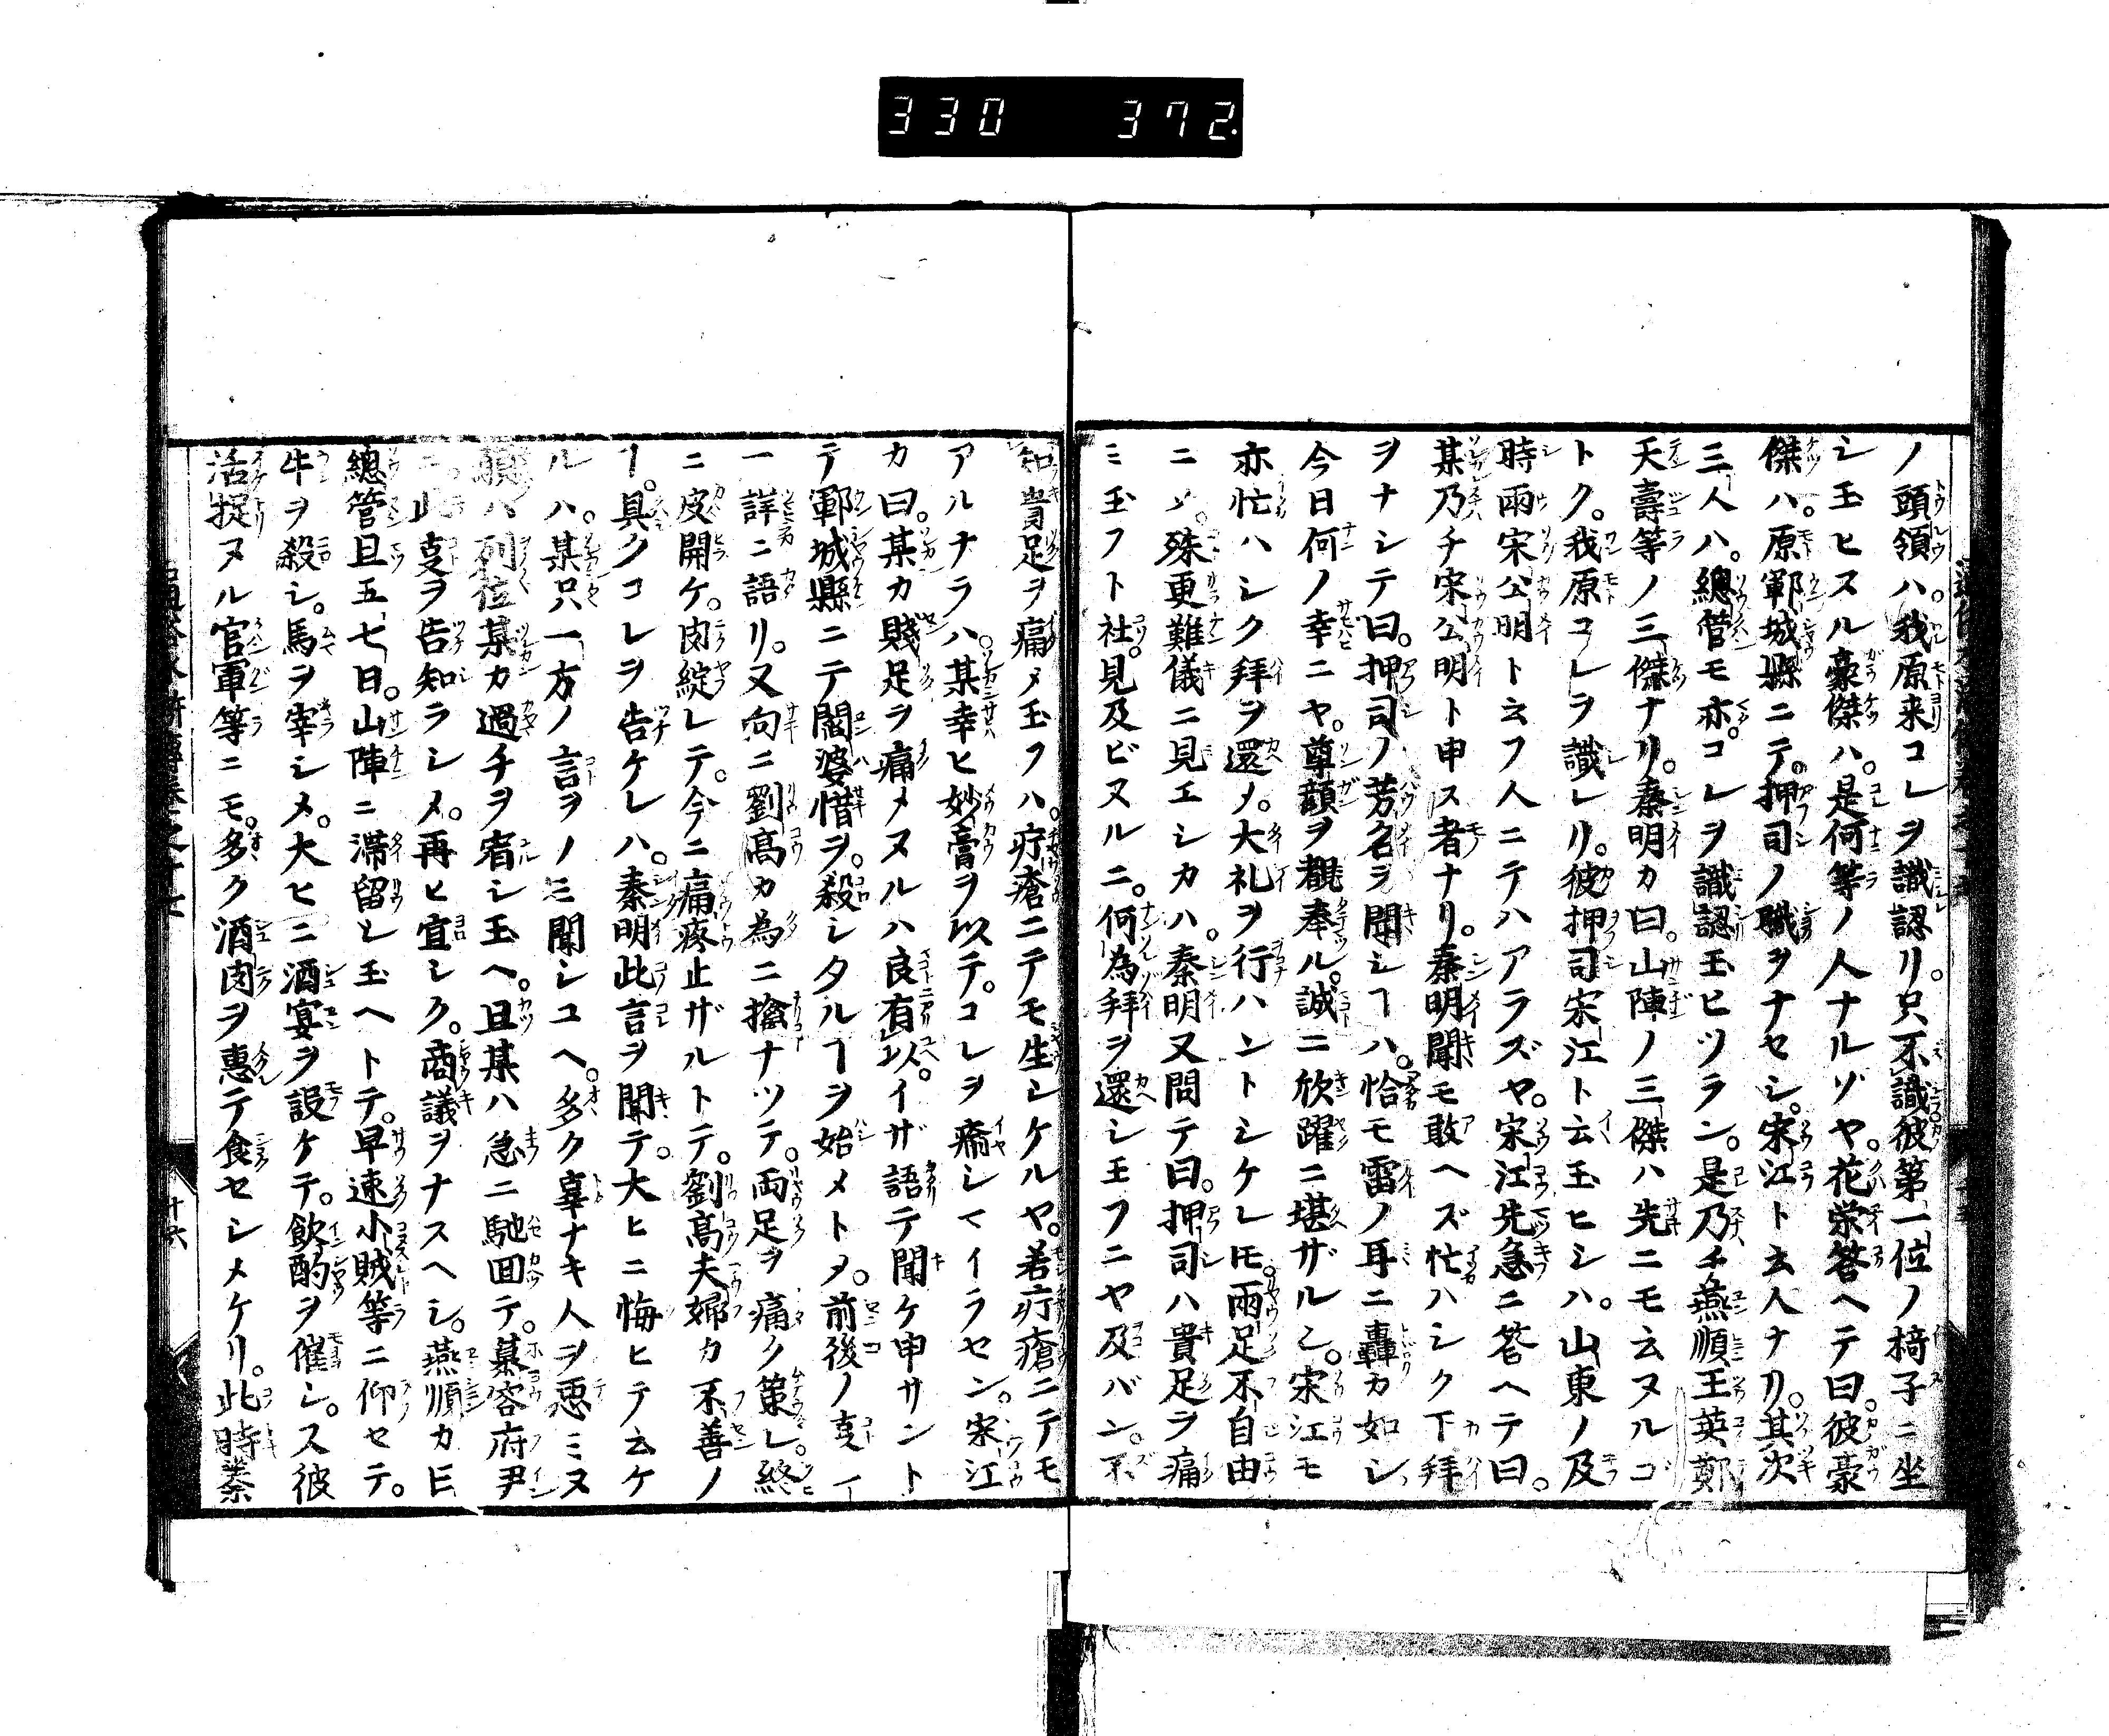 330 372.
ノ頭領ハ。我原来コレヲ識認リ。只不識彼第一位ノ椅子ニ坐
シ玉ヒスル豪傑ハ。是何等ノ人ナルゾヤ。花栄答ヘテ曰。彼豪
傑ハ。原鄆城縣ニテ。押司ノ職ヲナセシ。宋江ト云人ナリ。其次
三人ハ。總管モ亦コレヲ識認玉ヒツラン。是乃チ燕順王英鄭
天壽等ノ三傑ナリ。秦明カ曰。山陣ノ三傑ハ先ニモ云ヌルゴ
トク。我原コレヲ識レリ。彼押司宋江ト云玉ヒシハ。山東ノ及
時雨宋公明ト云フ人ニテハアラズヤ。宋江先急ニ答ヘテ曰。
某乃チ宋公明ト申ス者ナリ。秦明聞モ敢ヘズ忙ハシク下拜
ヲナシテ曰。押司ノ芳名ヲ聞シヿハ。恰モ雷ノ耳ニ轟カ如シ
今日何ノ幸ニヤ。尊顔ヲ覩奉ル。誠ニ欣躍ニ堪ザルシ。宋江モ
亦忙ハシク拜ヲ還メ。大礼ヲ行ハントシケレ𪜈。兩足不自由
ニメ。殊更難儀ニ見エシカハ。秦明又問テ曰。押司ハ貴足ヲ痛
ミ玉フト社。見及ビヌルニ。何為拜ヲ還シ玉フニヤ及バン。不
知貴足ヲ痛メ玉フハ。疔瘡ニテモ生シケルヤ。若疔瘡ニテモ
アルナラハ。某幸ヒ妙膏ヲ以テ。コレヲ療シマイラセン。宋江
カ曰。某カ賤足ヲ痛メヌルハ良有以。イザ語テ聞ケ申サント
テ鄆城縣ニテ閻婆惜ヲ。殺シタルヿヲ始メトメ。前後ノ叓一
一詳ニ語リ。又向ニ劉高カ為ニ擒ナツテ。両足ヲ痛ク策レ。終
ニ皮開ケ。肉綻レテ。今ニ痛疼止ザルトテ。劉高夫婦カ不善ノ
ヿ。具クコレヲ告ケレハ。秦明此言ヲ聞テ。大ヒニ悔ヒテ云ケ
ルハ。某只一方ノ言ヲノミ聞シユヘ。多ク辜ナキ人ヲ悪ミヌ
願ハ列位某カ過チヲ宥シ玉ヘ。且某ハ急ニ馳回テ。慕容府尹
ニ。此叓ヲ告知ラシメ。再ヒ宜シク。商議ヲナスヘシ。燕順カ曰
總管且五七日。山陣ニ滞留シ玉ヘトテ。早速小賊等ニ仰セテ。
牛ヲ殺シ。馬ヲ宰シメ。大ヒニ酒宴ヲ設ケテ。飲酌ヲ催シ。又彼
活捉ヌル官軍等ニモ。多ク酒肉ヲ惠テ食セシメケリ。此時秦
十六